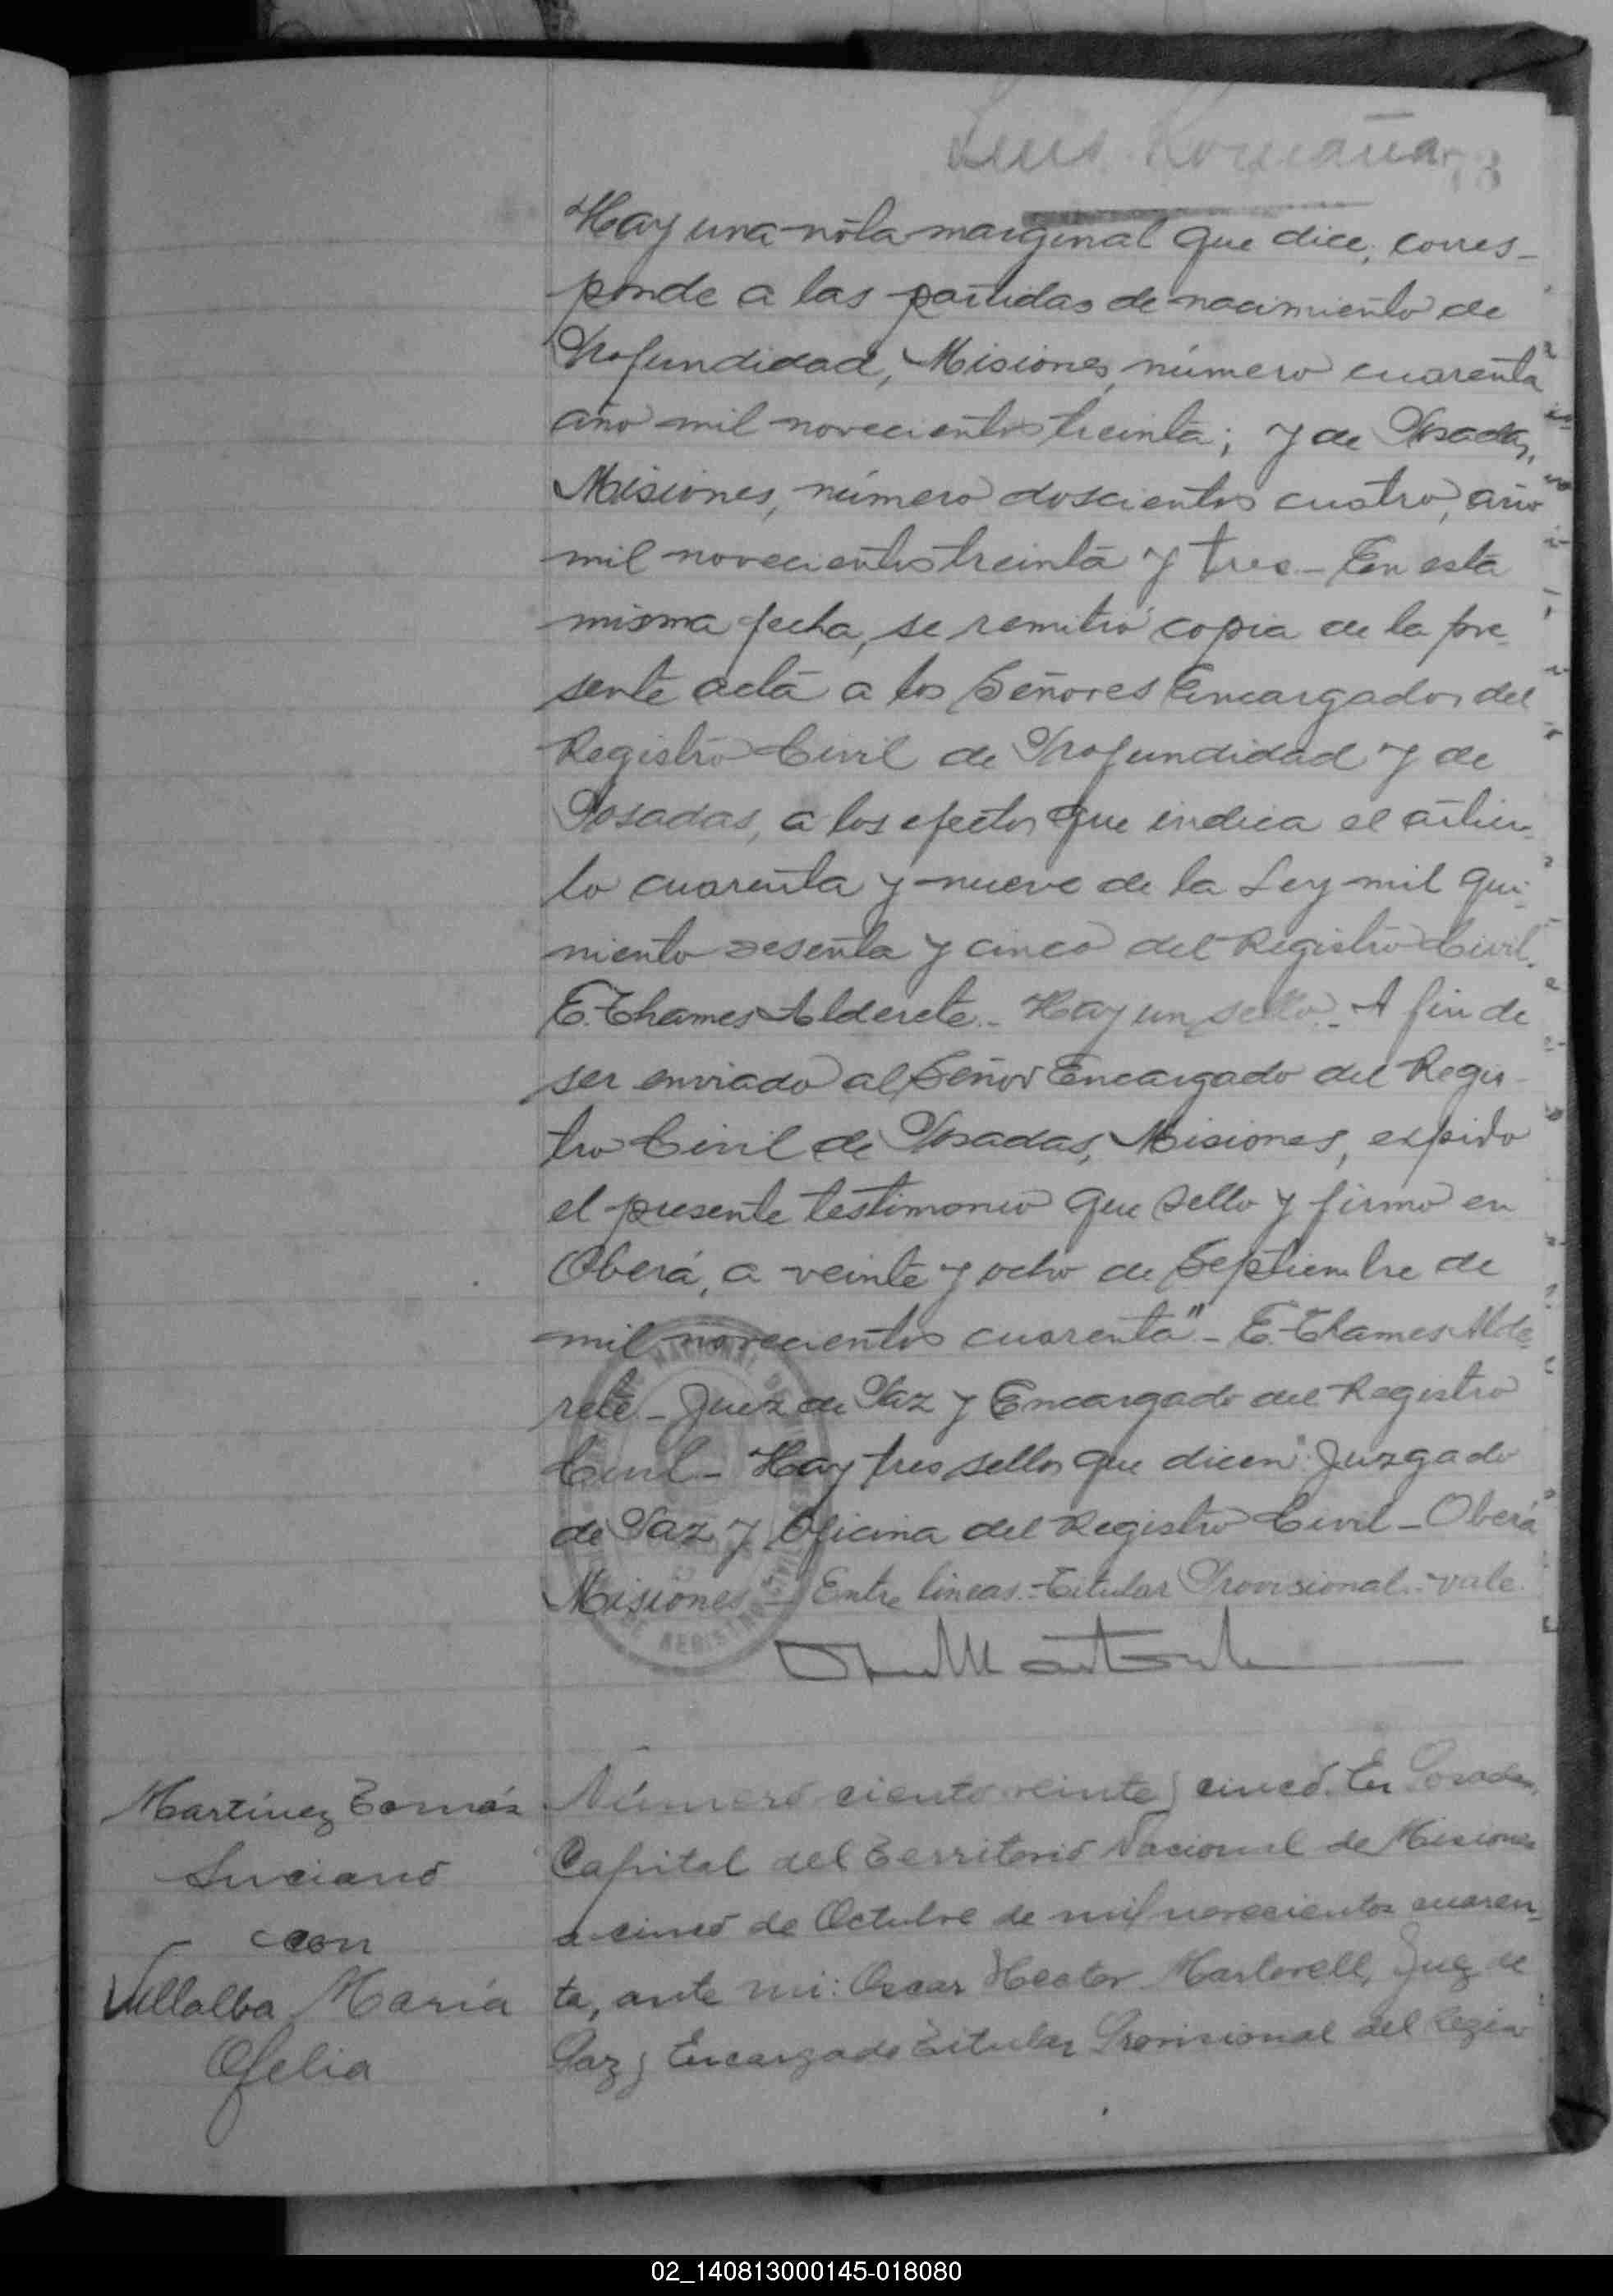 Luis Romaña
Hay una nota marginal que dice, corres-
ponde a las partidas de nacimiento de
Profundidad, Misiones, número cuarenta
año mil novecientos treinta; y de Posadas,
Misiones, número doscientos cuatro, año
mil novecientos treinta y tres. En esta
misma fecha, se remitió copia de la pre-
sente acta a los Señores Encargados del
Registro Civil de Profundidad y de
Posadas, a los efectos que indica el artícu-
lo cuarenta y nueve de la Ley mil qui-
niento sesenta y cinco del Registro Civil.
E. Thames Alderete. Hay un sello. A fin de
ser enviado al Señor Encargado del Regis-
tro Civil de Posadas, Misiones, expido
el presente testimonio que sello y firmo en
Oberá, a veinte y ocho de Septiembre de
mil novecientos cuarenta" - E. Thames Alde-
rete - Juez de Paz y Encargado del Registro
Civil - Hay tres sellos que dicen: Juzgado
de Paz y Oficina del Registro Civil - Oberá
Misiones - Entre lineas: Titular Provisional. vale.
Martínez Tomás
Luciano
con
Villalba María
Ofelia
Número ciento veinte y cinco. En Posadas,
Capital del Territorio Nacional de Misiones
a cinco de Octubre de mil novecientos cuaren-
ta, ante mi: Oscar Hector Martorell, Juez de
Paz y Encargado Titular Provisional del Regis-
02_140813000145-018080